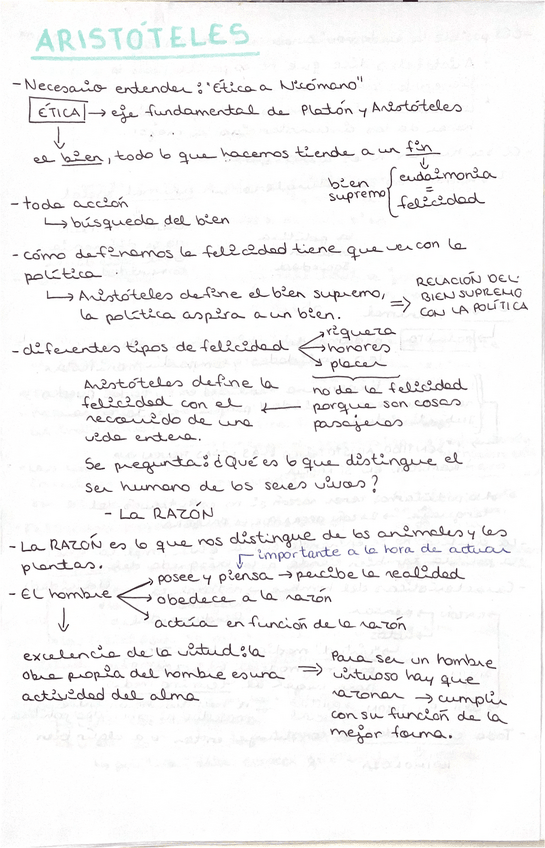 ARISTÓTELES
- Necesario entender: "Ética a Nicómano"
ÉTICA → eje fundamental de Platón y Aristóteles
el bien, todo lo que hacemos tiende a un fin
bien supremo { eudaimonia = felicidad
- toda acción
↳ búsqueda del bien
- cómo definamos la felicidad tiene que ver con la
política.
↳ Aristóteles define el bien supremo,
la política aspira a un bien.
⇒ RELACIÓN DEL
BIEN SUPREMO
CON LA POLÍTICA
- diferentes tipos de felicidad
riqueza
honores
placer
no da la felicidad
porque son cosas
pasajeras
Aristóteles define la
felicidad con el
recorrido de una
vida entera.
Se pregunta: ¿Qué es lo que distingue el
ser humano de los seres vivos?
- La RAZÓN
- La RAZÓN es lo que nos distingue de los animales y las
plantas.
importante a la hora de actuar
- El hombre
posee y piensa → percibe la realidad
obedece a la razón
actúa en función de la razón
excelencia de la virtud: la
obra propia del hombre es una
actividad del alma
⇒ Para ser un hombre
virtuoso hay que
razonar → cumplir
con su función de la
mejor forma.